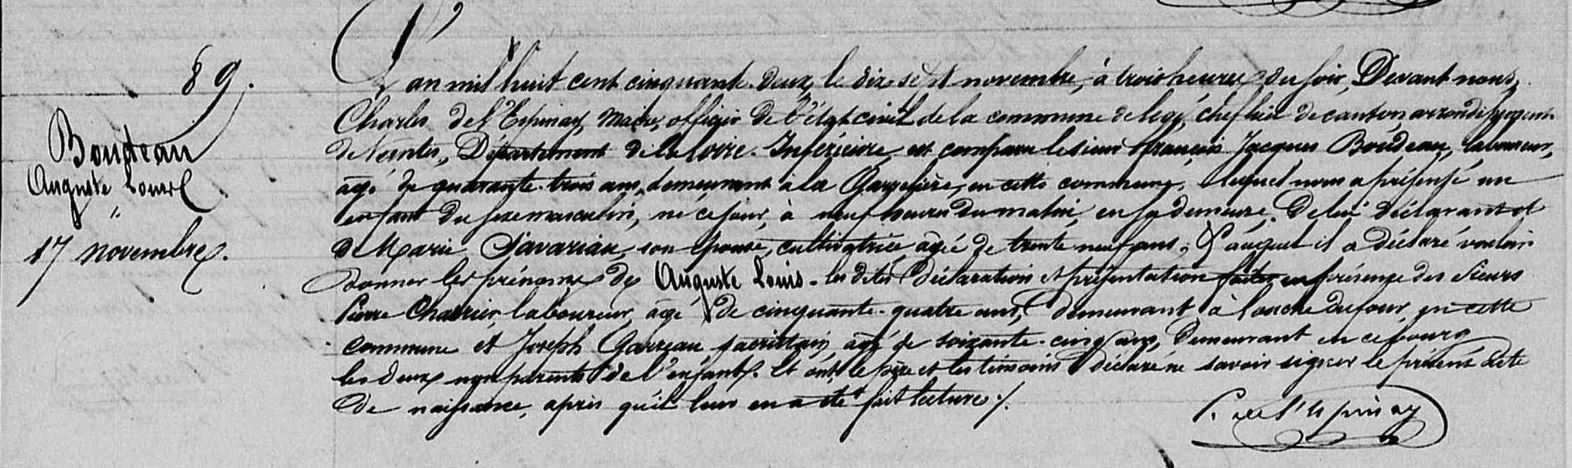 89.
Boudeau
Auguste Louis
17 novembre.
L'an mil huit cent cinquante-deux, le dix sept novembre, à trois heures du soir, Devant nous,
Charles de l'Espinay, Maire, officier de l'état civil de la commune de legé, chef lieu de canton arrondissement
de Nantes, Département de la Loire-Inférieure, est comparu le sieur françois Jacques Boudeau, laboureur,
agé de quarante-trois ans, demeurant à la en cette commune, lequel nous a présenté un
enfant du sexe masculin, né ce jour, à neuf heures du matin, en sa demeure, De lui déclarant et
de Marie Savariau, son épouse, cultivatrice agée de trente neuf ans, & auquel il a déclaré vouloir
donner les prénoms de Auguste Louis. les dites Déclaration et présentation faites en présence des sieurs
Pierre Charrier, laboureur, agé de cinquante-quatre ans, demeurant à l'ouche du four en cette
commune et Joseph Garreau sacristain, agé de soixante-cinq ans, Demeurant en ce bourg
les deux non parents de l'enfant. Et ont, le père et les témoins déclaré ne savoir signer le présent acte
de naissance, après qu'il leur en a été fait lecture ./.
C. de l'Espinay